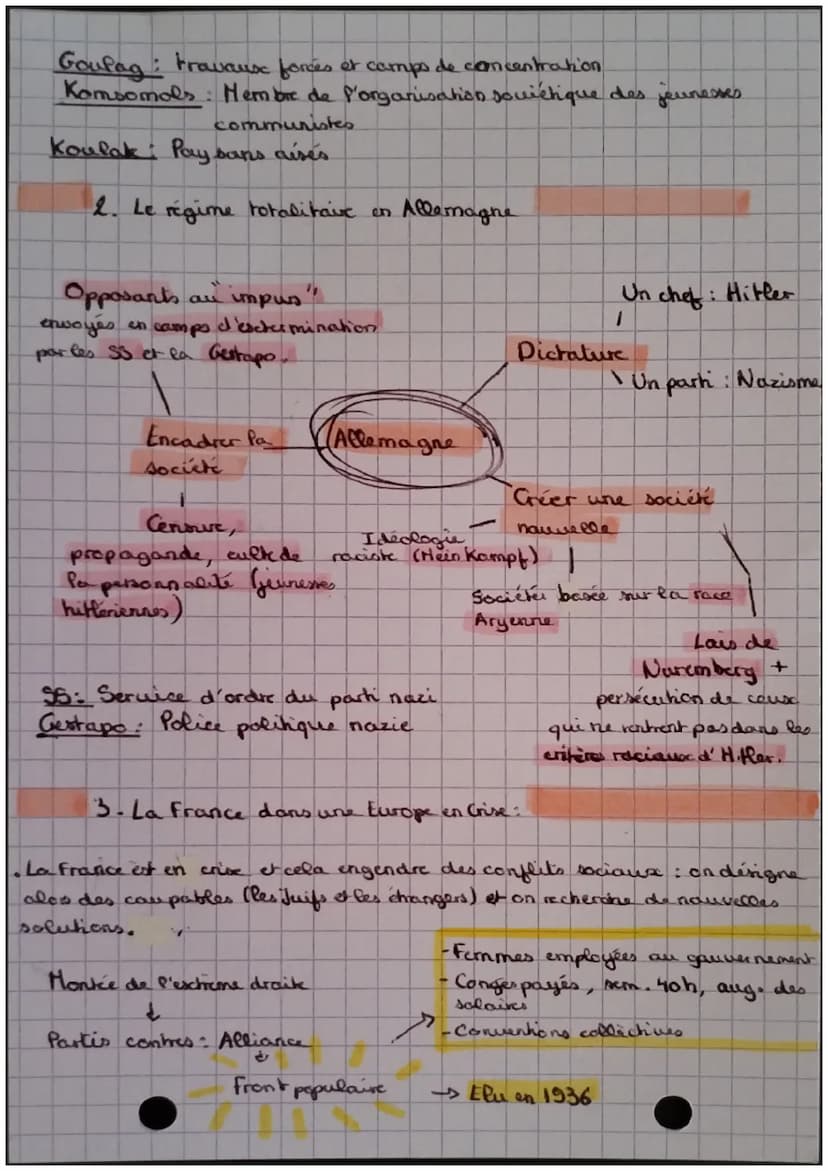 Goulag : travaux forcés et camps de concentration
Komsomols : Membre de l'organisation soviétique des jeunesses
communistes
Koulak : Paysans aisés
2. Le régime totalitaire en Allemagne
Opposants au "impurs"
envoyés en camps d'extermination
par les SS et la Gestapo.
Un chef : Hitler
Dictature
Un parti : Nazisme
Encadrer la
société
Allemagne
Créer une société
nouvelle
Censure,
propagande, culte de
la personnalité (jeunesses
hitlériennes)
Idéologie
raciste (Mein Kampf)
Société basée sur la race
Aryenne
Lois de
Nuremberg +
persécution de ceux
qui ne rentrent pas dans les
critères raciaux d'Hitler.
SS : Service d'ordre du parti nazi
Gestapo : Police politique nazie
3. La France dans une Europe en Crise :
. La France est en crise et cela engendre des conflits sociaux : on désigne
alos des coupables (les Juifs et les étrangers) et on recherche de nouvelles
solutions.
Montée de l'extrême droite
↓
Partis contres : Alliance
↓
Front populaire → Elu en 1936
- Femmes employées au gouvernement
- Conges payés, sem. 40h, aug. des
salaires
- Conventions collectives